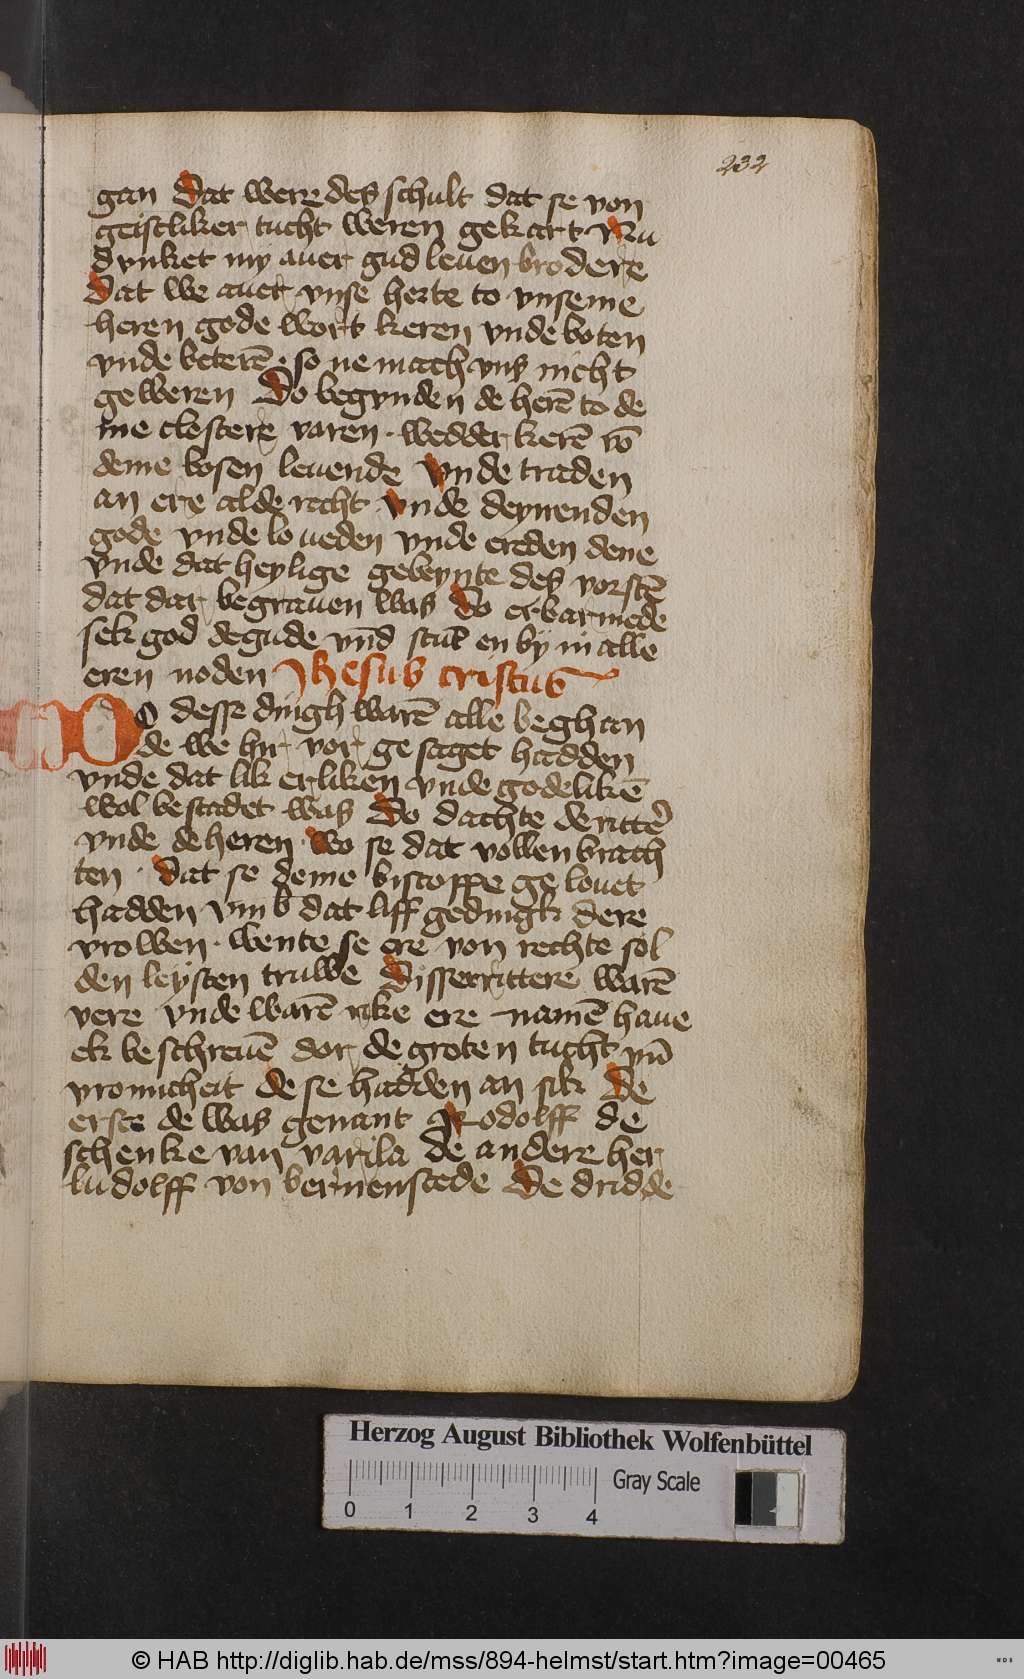 232
gan Dat were des schult dat se von
geistliker tucht weren gekart Nu
dunket my auer gud leuen brodere
Dat we auer vnse herte to vnseme
heren gode wort keren vnde boten
vnde beterē · so ne mach vns nicht
geweren Do begvnden de herē to de
me clestere varen · wedder kerē vō
deme bosen leuende Vnde traden
an ere alde racht Vnde deynenden
gode vnde loueden vnde ereden dene
vnde dat heylige gebeynte des vorstē
dat dar begrauen was Do erbarmede
sek god de gude vnd stūt en by in alle
eren noden Jhesus cristus
DO desse dingh warē alle beghan
de we hir vor gesaget hadden
vnde dat lik erliken vnde godelikē
wol bestadet was Do dachte de ritter
vnde de heren · wo se dat vollenbrach
ten · Dat se deme biscoppe gelouet
hadden vmb dat liff gedingk dere
vrowen · wente se ere von rechte sol
den leysten truwe Disser rittere warē
vere vnde warē rike ere namē haue
ek beschreuē dor de groten tucht vn̄
vromicheit de se hadden an sik De
erste de was genant Rodolff de
schenke van varila de andere her
ludolff von bernenstede De dridde
Herzog August Bibliothek Wolfenbüttel
0 1 2 3 4 Gray Scale
© HAB http://diglib.hab.de/mss/894-helmst/start.htm?image=00465